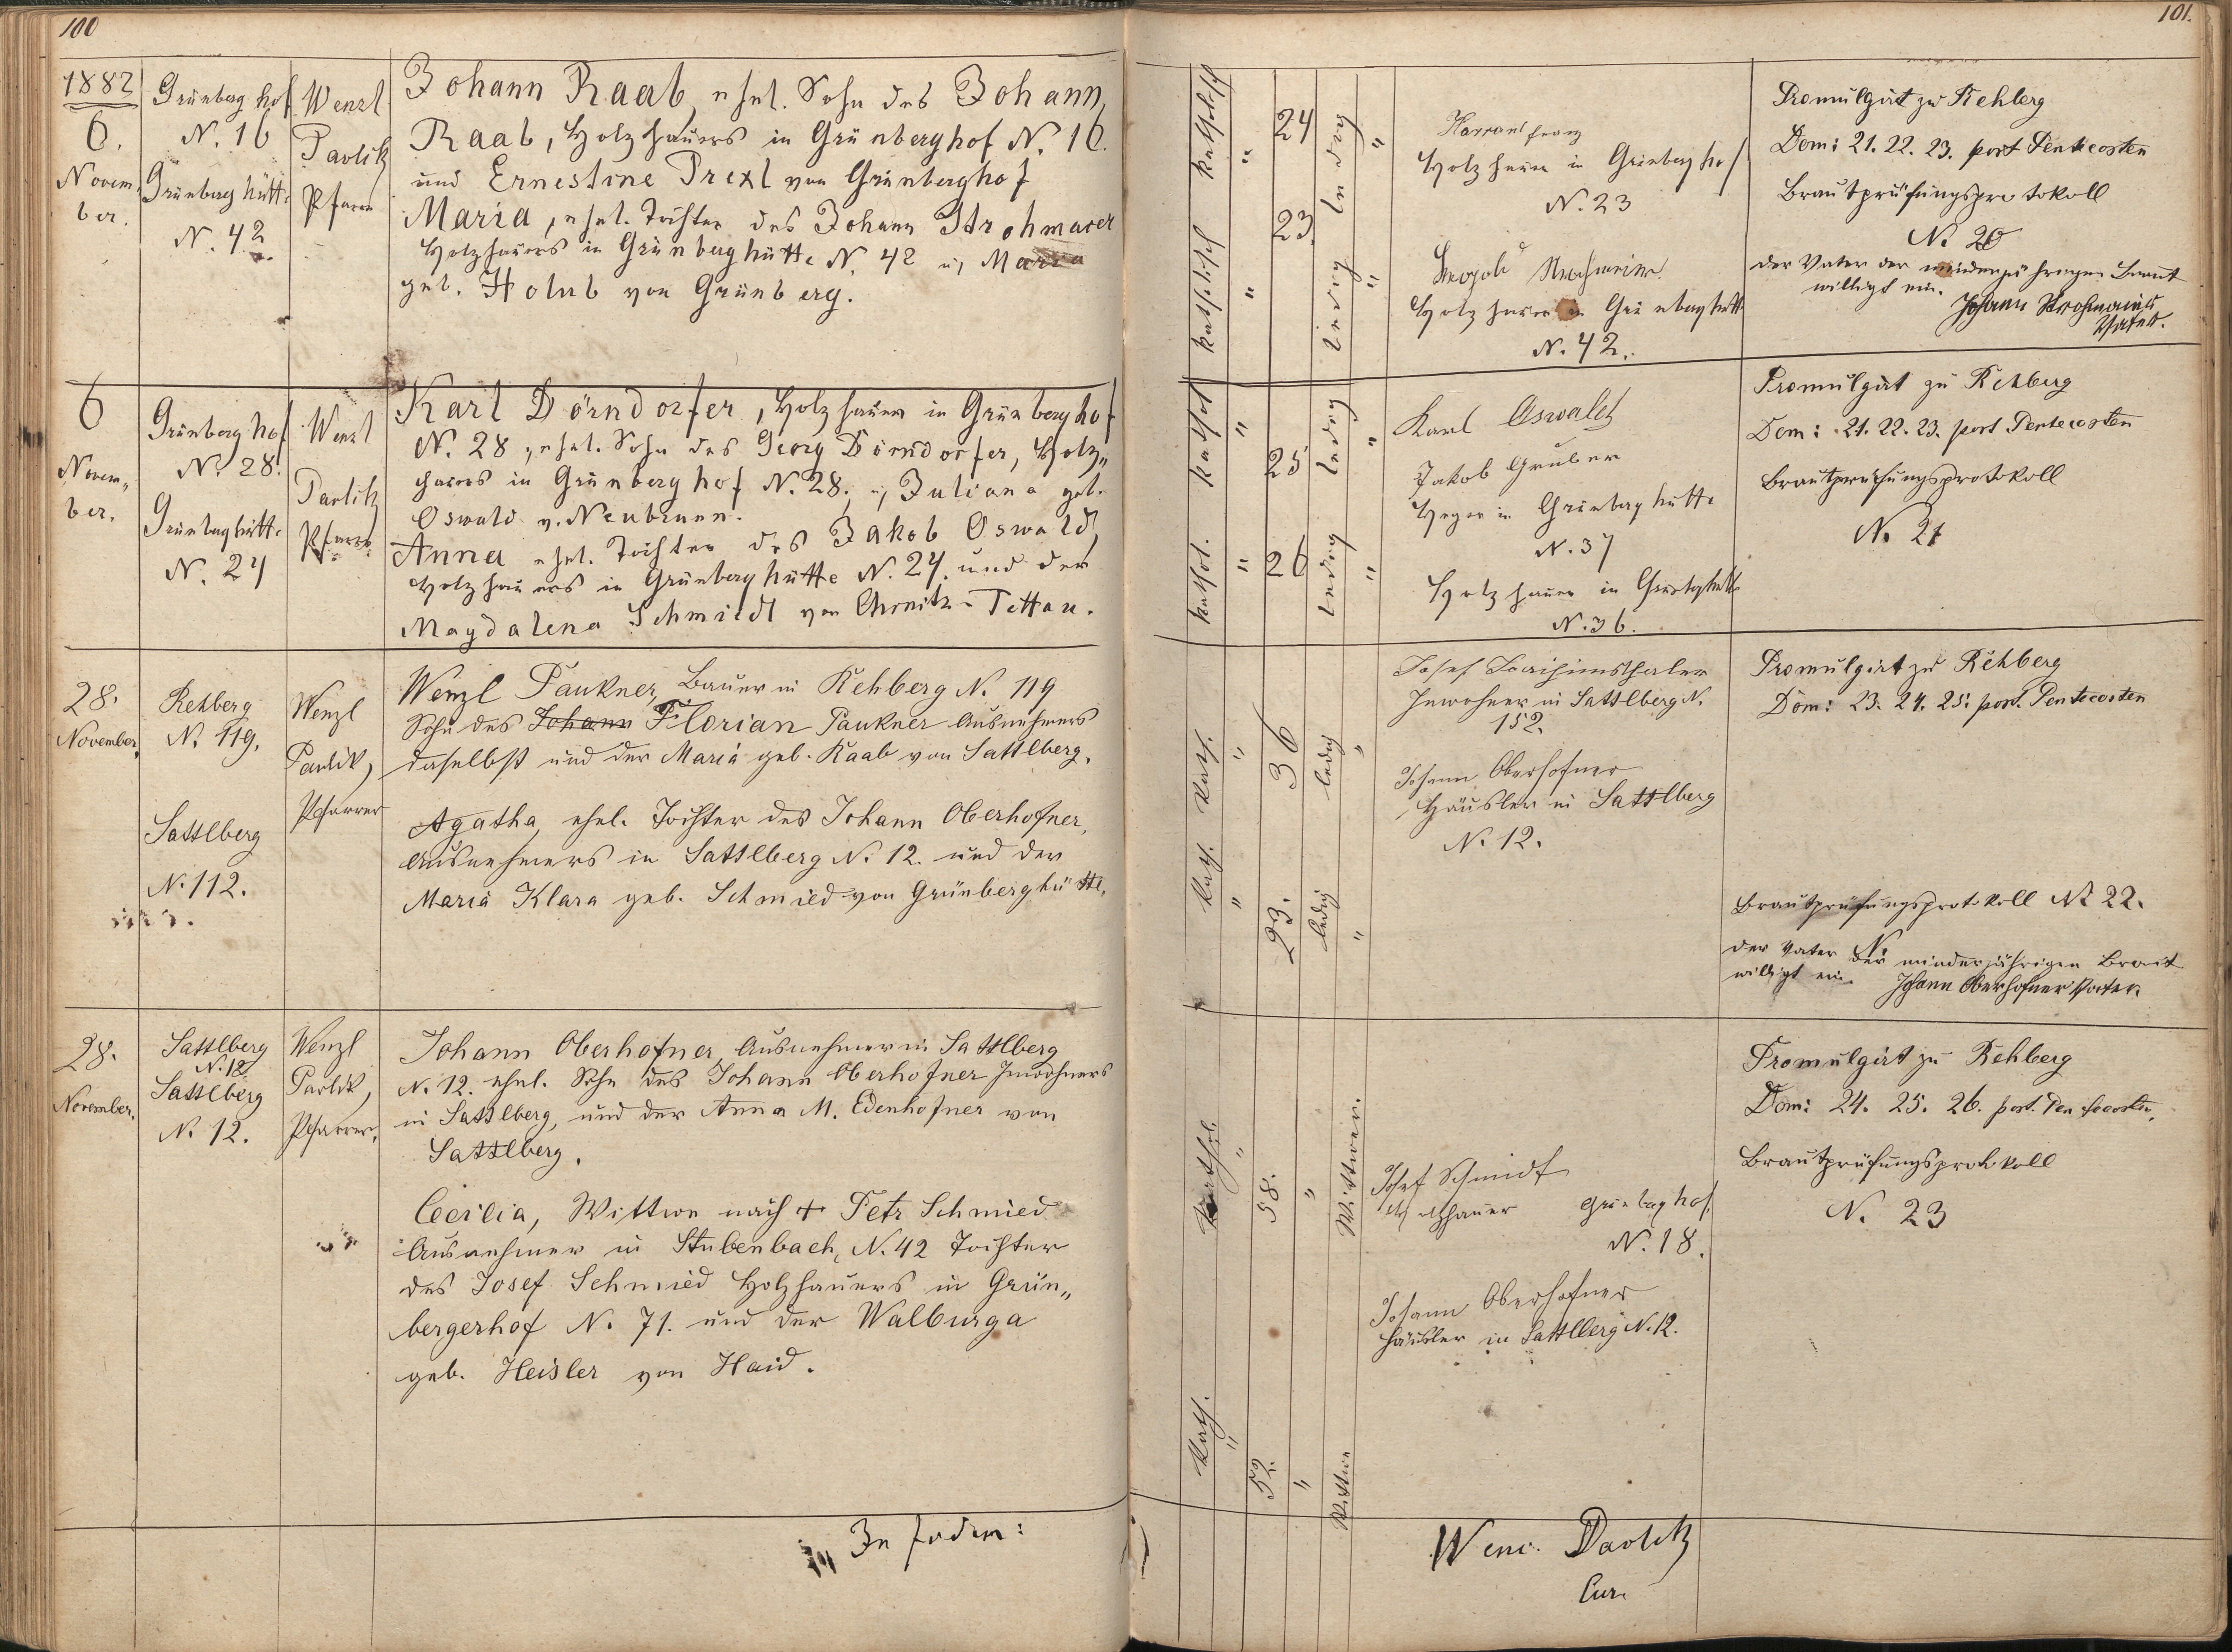 100
1882
6.
Novem,
ber.
Grünberg hof
N. 16
Grünberg hütte
N. 42
Wenzl
Pavlik
Pfarrer
Johann Raab, ehel. Sohn des Johann
Raab, Holzhauers in Grünberghof N. 16.
und Ernestine Prexl von Grünberghof
Maria, ehel. Tochter des Johann Strohmaver
Holzhauers in Grünberghütte N. 42 u, Maria
geb. Holub von Grünberg.
6
Novem„
ber.
Grünberg hof
N. 28.
Grünberghütte
N. 24
Wenzl
Pavlik
Pfarrer
Karl Dörndorfer, Holzhauer in Grünberghof
N. 28, ehel. Sohn des Georg Dörndorfer, Holz„
hauers in Grünberghof N. 28. u, Juliana geb.
Oswald v. Neubrunn.
Anna ehel. Tochter des Jakob Oswald,
Holzhauers in Grünberghütte N. 24. und der
Magdalena Schmidl von Tettau.
28.
November.
Rehberg
N. 119.
Sattlberg
N. 112.
Wenzl
Pavlik,
Pfarrer
Wenzl Paukner, Bauer in Rehberg N. 119
Sohn des Johann Florian Paukner Ausnehmers
daselbst und der Maria geb. Raab von Sattlberg.
Agatha, ehel. Tochter des Johann Oberhofner,
Ausnehmers in Sattlberg N. 12. und der
Maria Klara geb. Schmied von Grünberghütte.
28.
November.
Sattlberg
N. 12
Sattlberg
N. 12.
Wenzl
Pavlik,
Pfarrer.
Johann Oberhofner, Ausnehmer in Sattlberg
N. 12. ehel. Sohn des Johann Oberhofner Inwohners
in Sattlberg, und der Anna M. Edenhofner von
Sattlberg.
Cecilia, Wittwe nach + Petr Schmied
Ausnehmer in Stubenbach, N. 42 Tochter
des Josef Schmied Holzhauers in Grün„
bergerhof N. 71. und der Walburga
geb. Heisler von Haid.
In fidem:
101.
katholisch
"
24
ledig
"
katholisch
"
23.
ledig
"
Franz
Holzhauer in Grünberghof
N. 23
Strohmeier
Holzhauer in Grünberghütte
N. 42.
Promulgirt zu Rehberg
Dom: 21. 22. 23. post Pentecosten
Brautprüfungsprotokoll
N. 20
der Vater der minderjährigen Braut
willigt ein.
Johann Strohmaier
Vater.
kathol
"
25
ledig
"
kathol.
"
26
ledig
"
Karl Oswald
Jakob Gruber
Heger in Grünberghütte
N. 37
Holzhauer in Grünberghütte
N. 36.
Promulgirt zu Rehberg
Dom: 21. 22. 23. post Pentecosten
Brautprüfungsprotokoll
N. 21
kath.
"
36
ledig
"
kath.
"
23.
ledig
"
Josef Joachimsthaler
Inwohner in Sattlberg N.
152.
Johann Oberhofner
Häusler in Sattlberg
N. 12.
Promulgirt zu Rehberg
Dom: 23. 24. 25. post. Pentecosten
Brautprüfungsprotokoll N. 22.
der Vater der minderjährigen Braut
willigt ein. Johann Oberhofner Vater
kathol.
"
58.
"
Wittwer.
kath.
"
52.
"
Wittwe
Josef Schmidt
Holzhauer Grünberghof.
N. 18.
Johann Oberhofner
Häusler in Sattlberg N. 12.
Promulgirt zu Rehberg
Dom: 24. 25. 26. post. Pentecosten.
Brautprüfungsprotokoll
N. 23
Wenc. Pavlik
Cur.